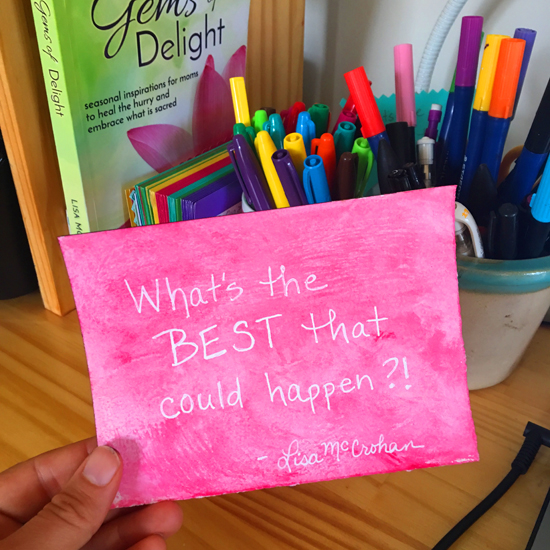 Gems of
Delight
seasonal inspirations for moms
to heal the hurry and
embrace what is sacred
Gems of Delight
LISA
What's the
BEST that
could happen?!
- Lisa McCrohan